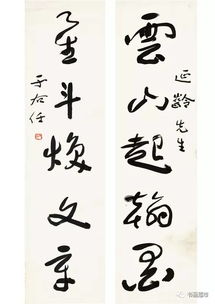 延龄先生
雲山起翰墨
星斗煥文章
于右任
书画葫芦